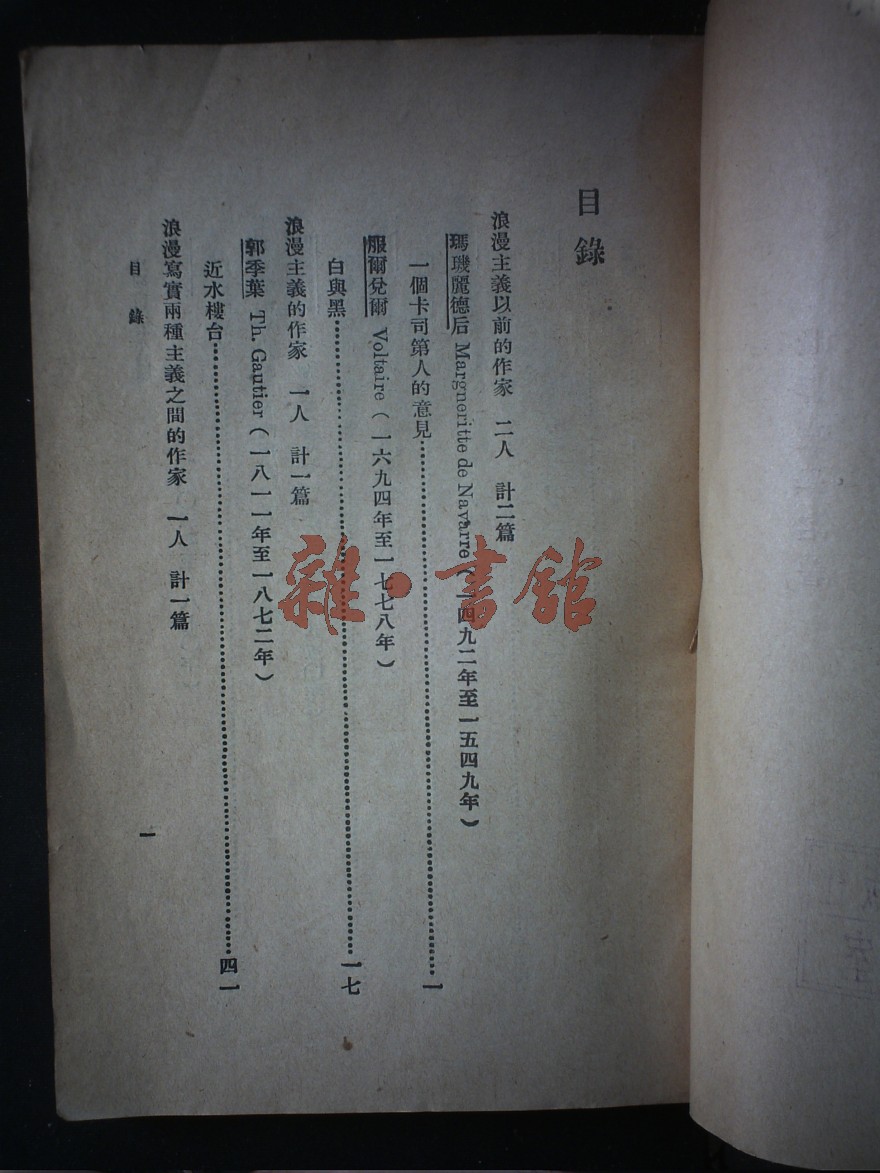 目錄
浪漫主義以前的作家 二人 計二篇
瑪璣麗德后 Margneritte de Navarre（一四九二年至一五四九年）
一個卡司第人的意見……………………一
服爾兌爾 Voltaire（一六九四年至一七七八年）
白與黑……………………一七
浪漫主義的作家 一人 計一篇
郭季葉 Th. Gautier（一八一一年至一八七二年）
近水樓台……………………四一
浪漫寫實兩種主義之間的作家 一人 計一篇
目錄
一
雜·書館